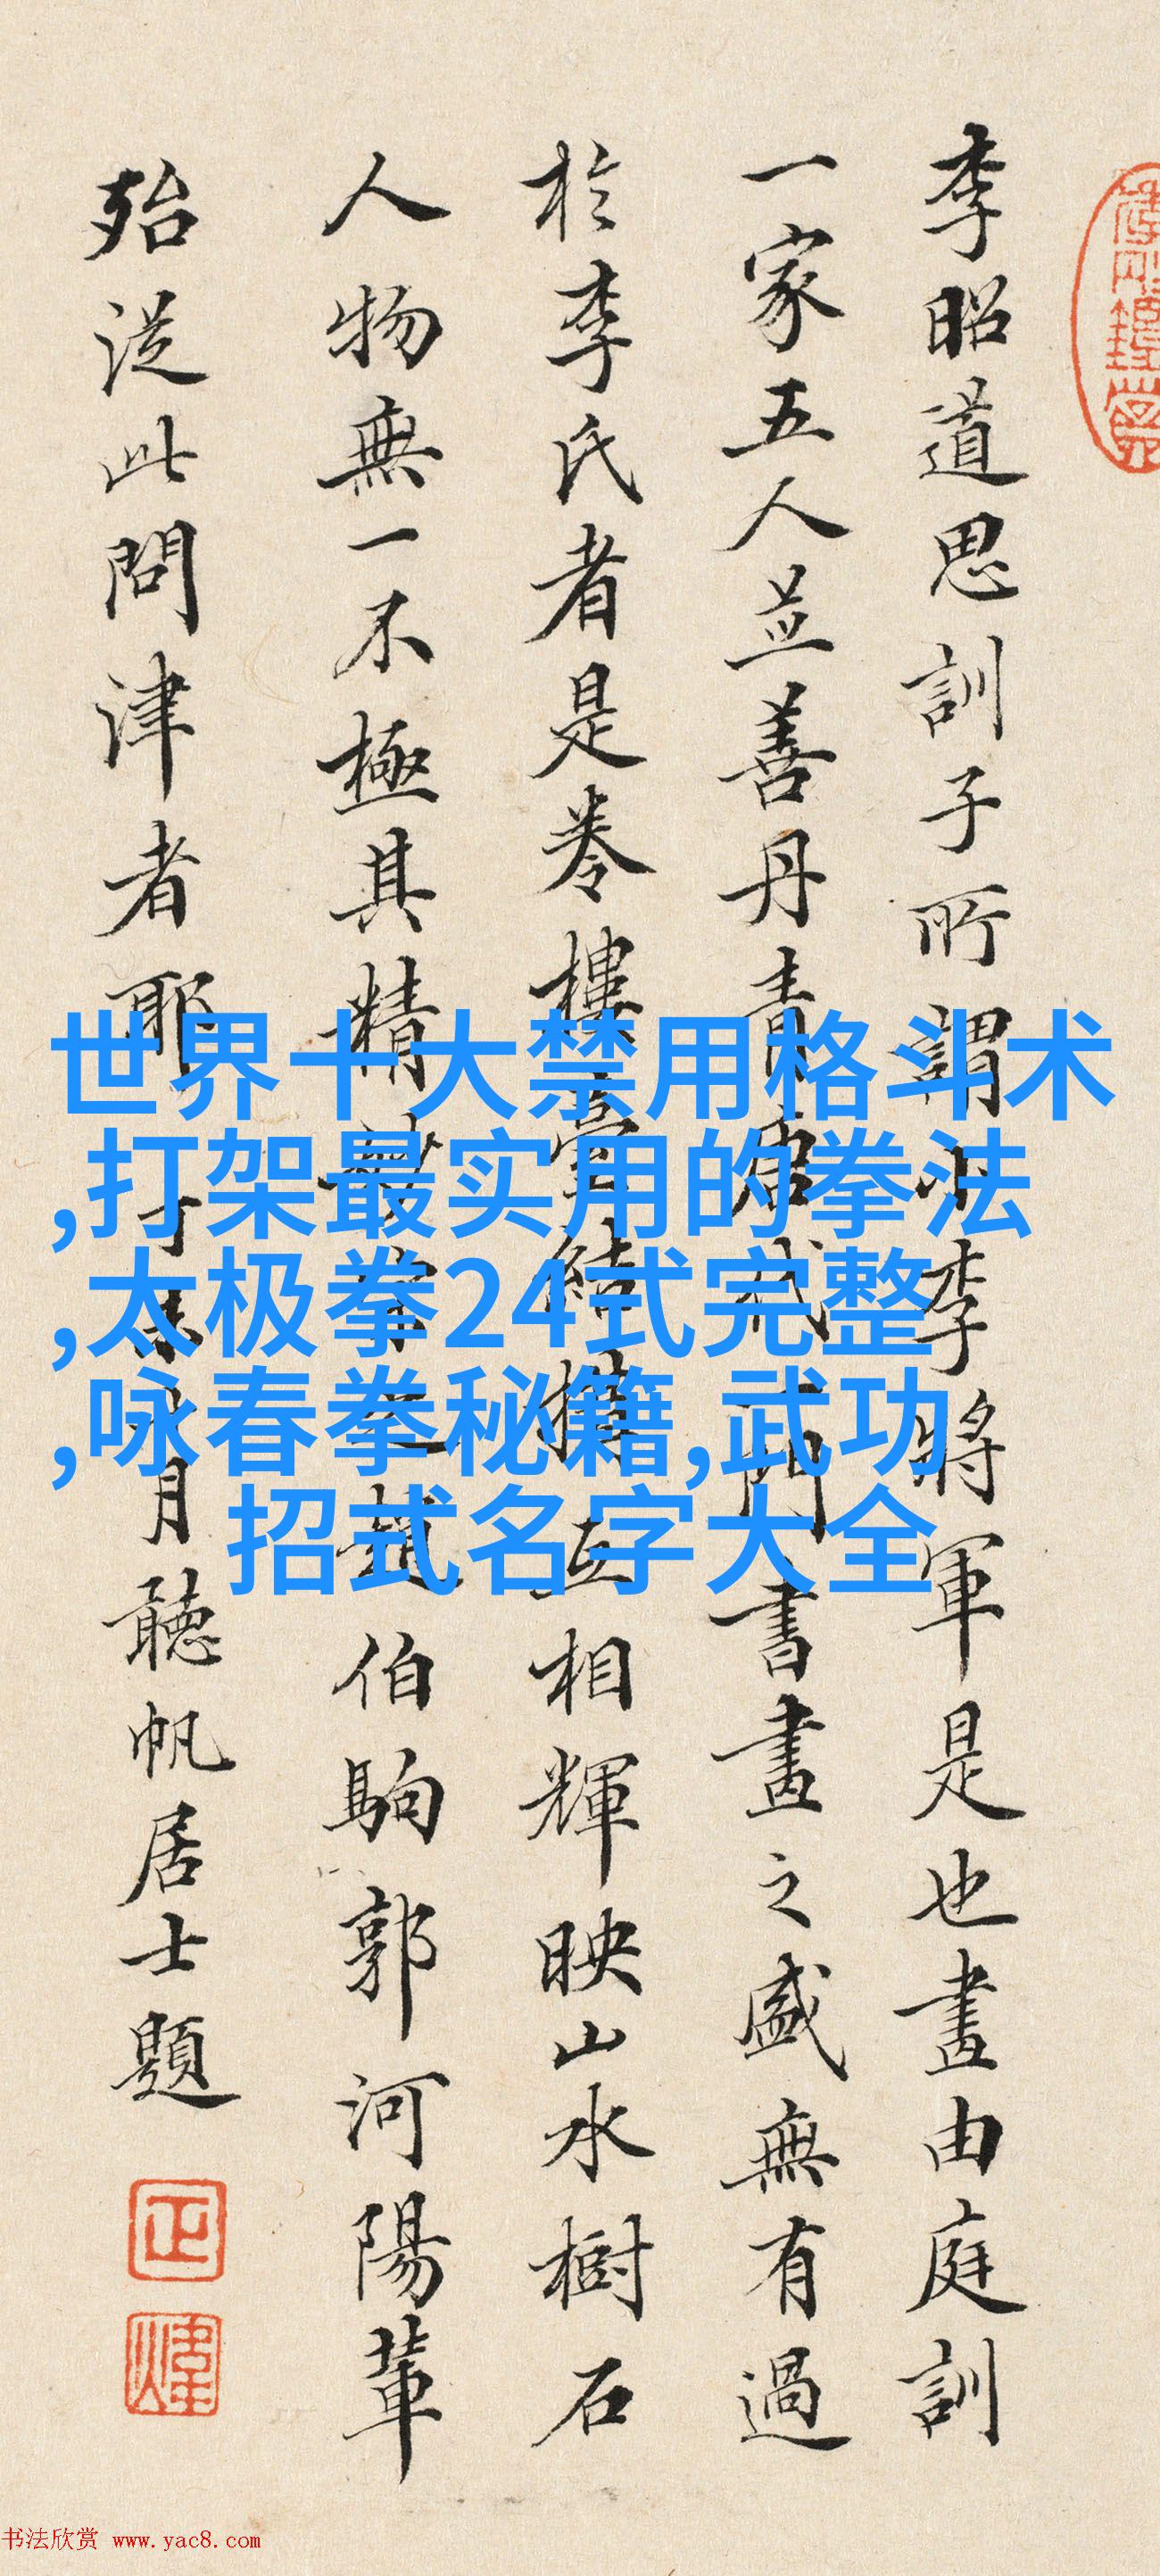 李昭道思訓子所謂小李將軍是也畫由庭訓
一家五人並善丹青唐代一門書畫之盛無有過
於李氏者是卷樓臺結構互相輝映山水樹石
人物無一不極其精妙宋之趙伯駒郭河陽輩
殆從此問津者耶丁月聽帆居士題
正
煒
世界十大禁用格斗术
,打架最实用的拳法
,太极拳24式完整
,咏春拳秘籍,武功
招式名字大全
书法欣赏 www.yac8.com